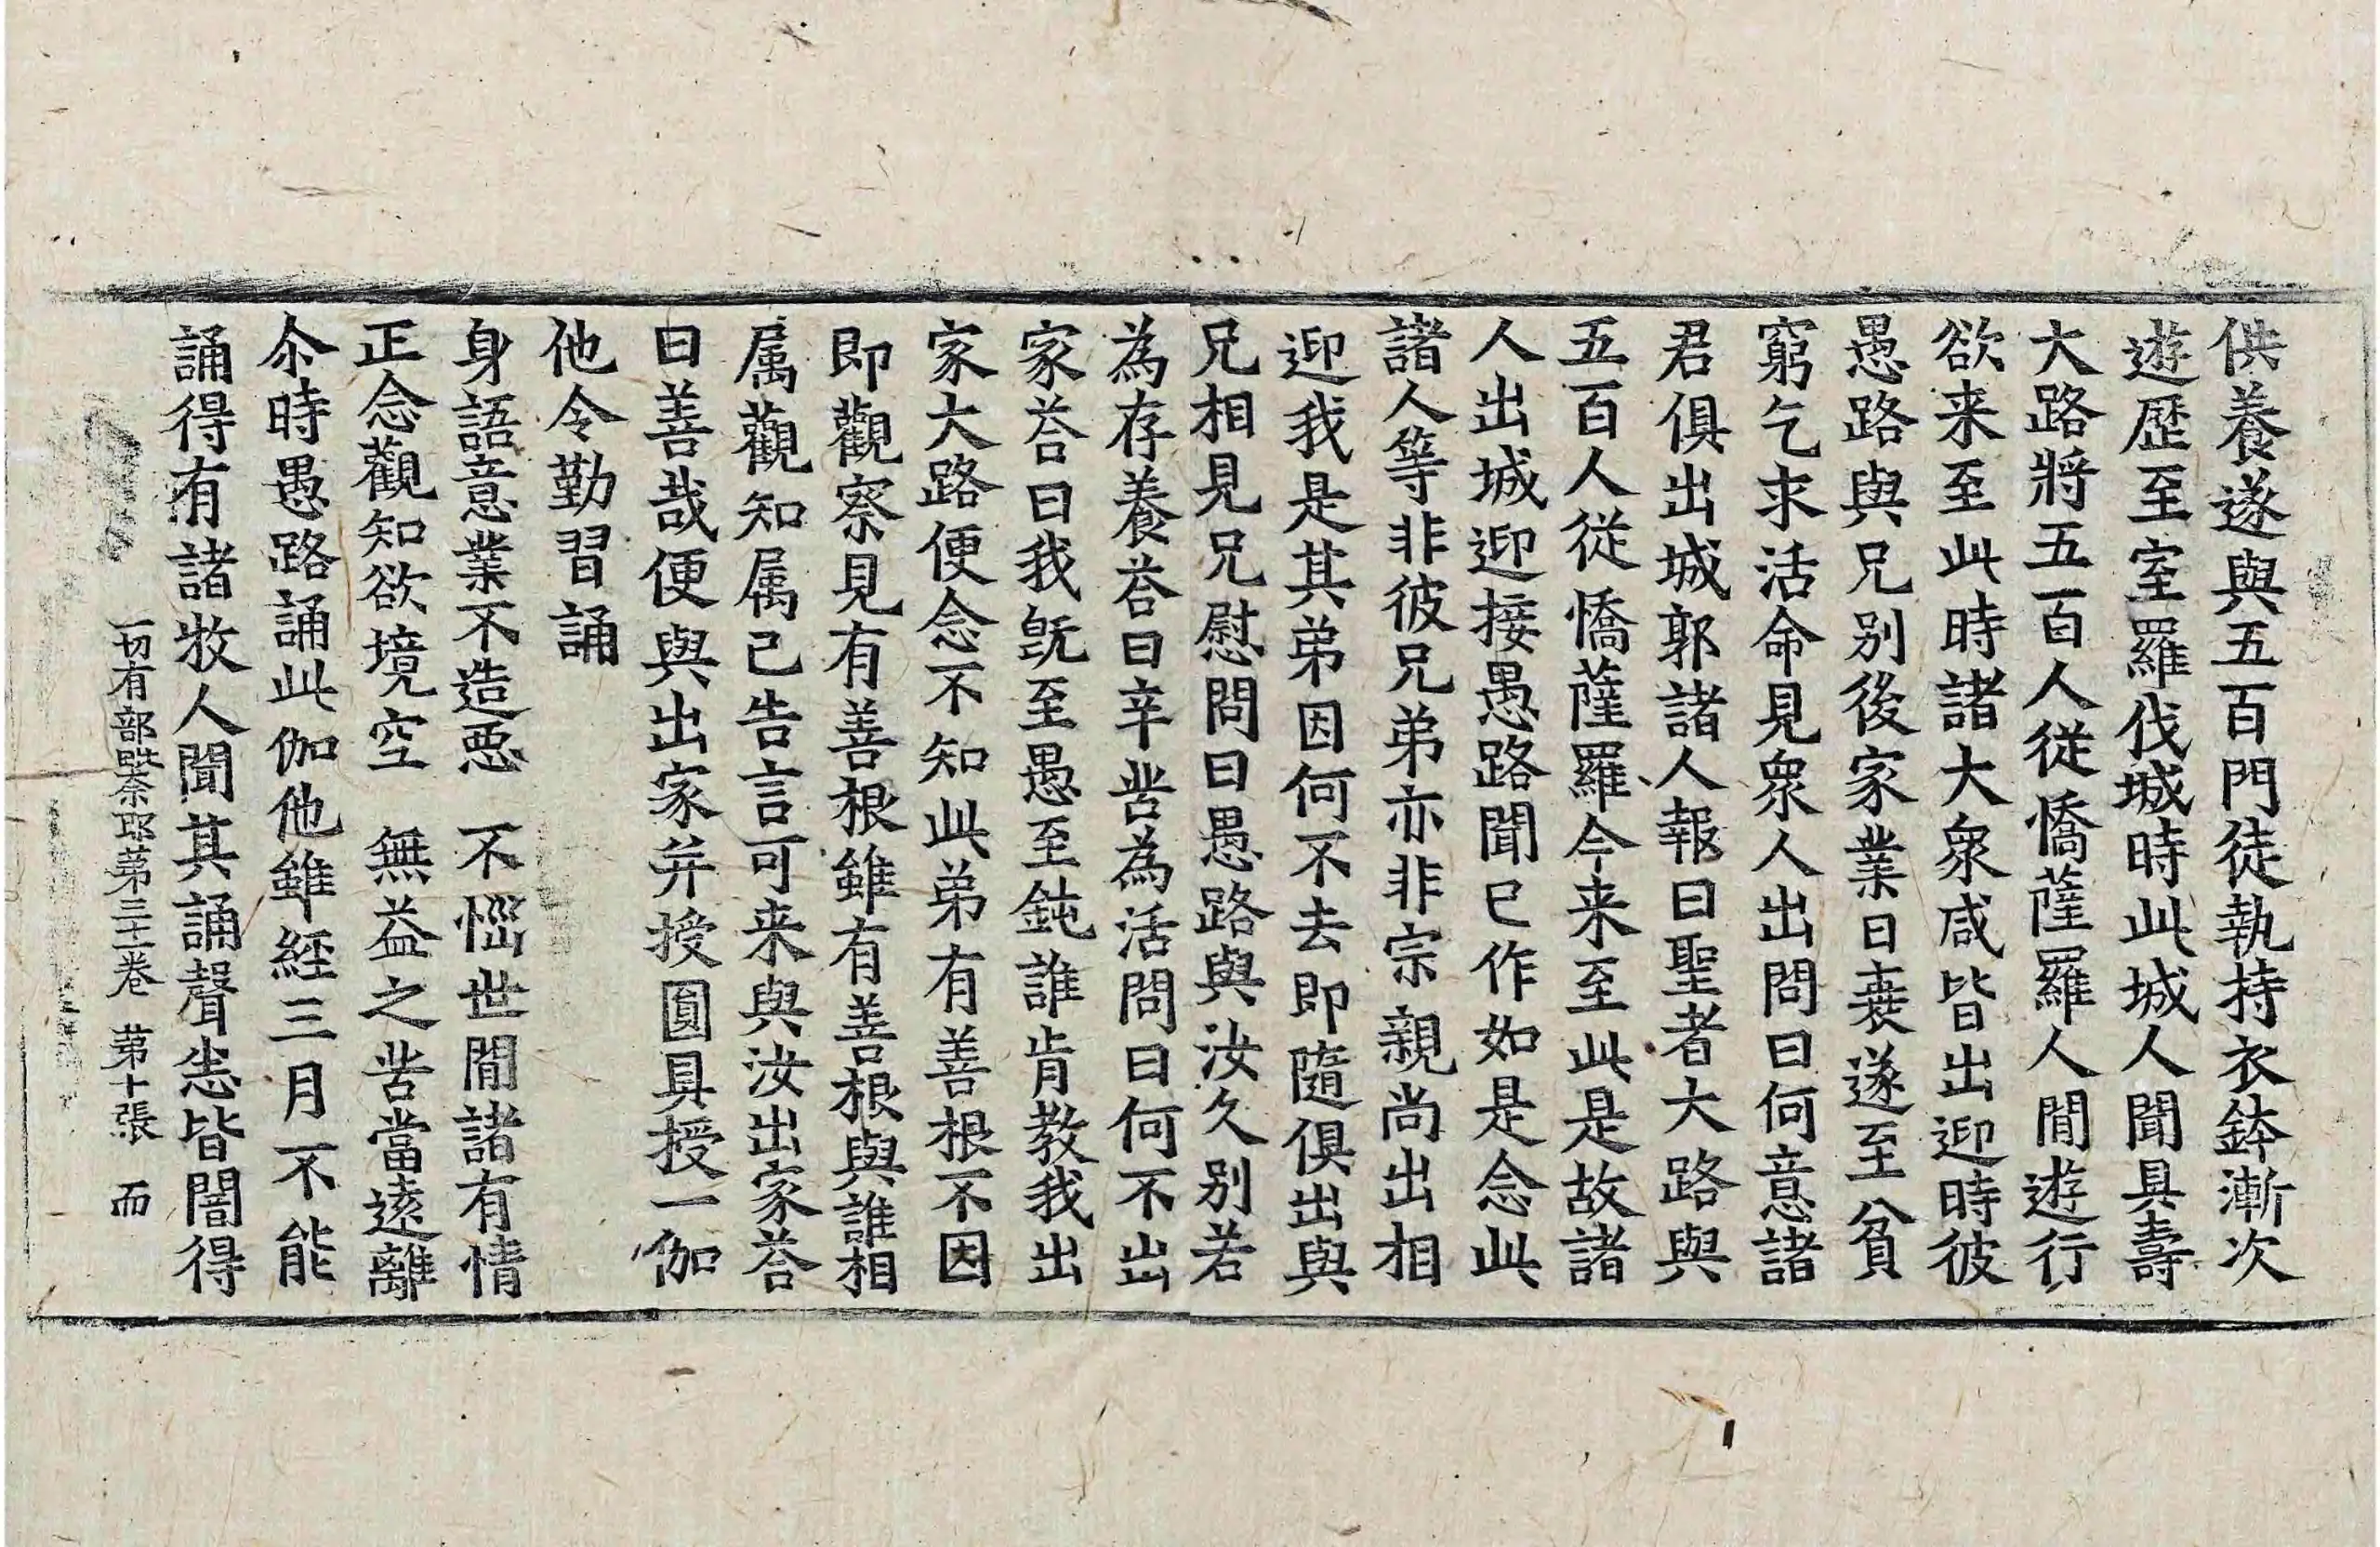 供養遂與五百門徒執持衣鉢漸次
遊歷至室羅伐城時此城人聞具壽
大路將五百人從憍薩羅人閒遊行
欲来至此時諸大衆咸皆出迎時彼
愚路與兄别後家業日衰遂至貧
窮乞求活命見衆人出問曰何意諸
君俱出城郭諸人報曰聖者大路與
五百人從憍薩羅今来至此是故諸
人出城迎接愚路聞已作如是念此
諸人等非彼兄弟亦非宗親尚出相
迎我是其弟因何不去即隨俱出與
兄相見兄慰問曰愚路與汝久别若
為存養荅曰辛苦為活問曰何不出
家荅曰我旣至愚至鈍誰肯教我出
家大路便念不知此弟有善根不因
即觀察見有善根雖有善根與誰相
属觀知属己告言可来與汝出家荅
曰善哉便與出家并授圓具授一伽
他令勤習誦
身語意業不造惡　不惱世間諸有情
正念觀知欲境空　無益之苦當遠離
尒時愚路誦此伽他雖經三月不能
誦得有諸牧人聞其誦聲悉皆闇得
一切有部毗奈耶第三十一卷　第十張　而